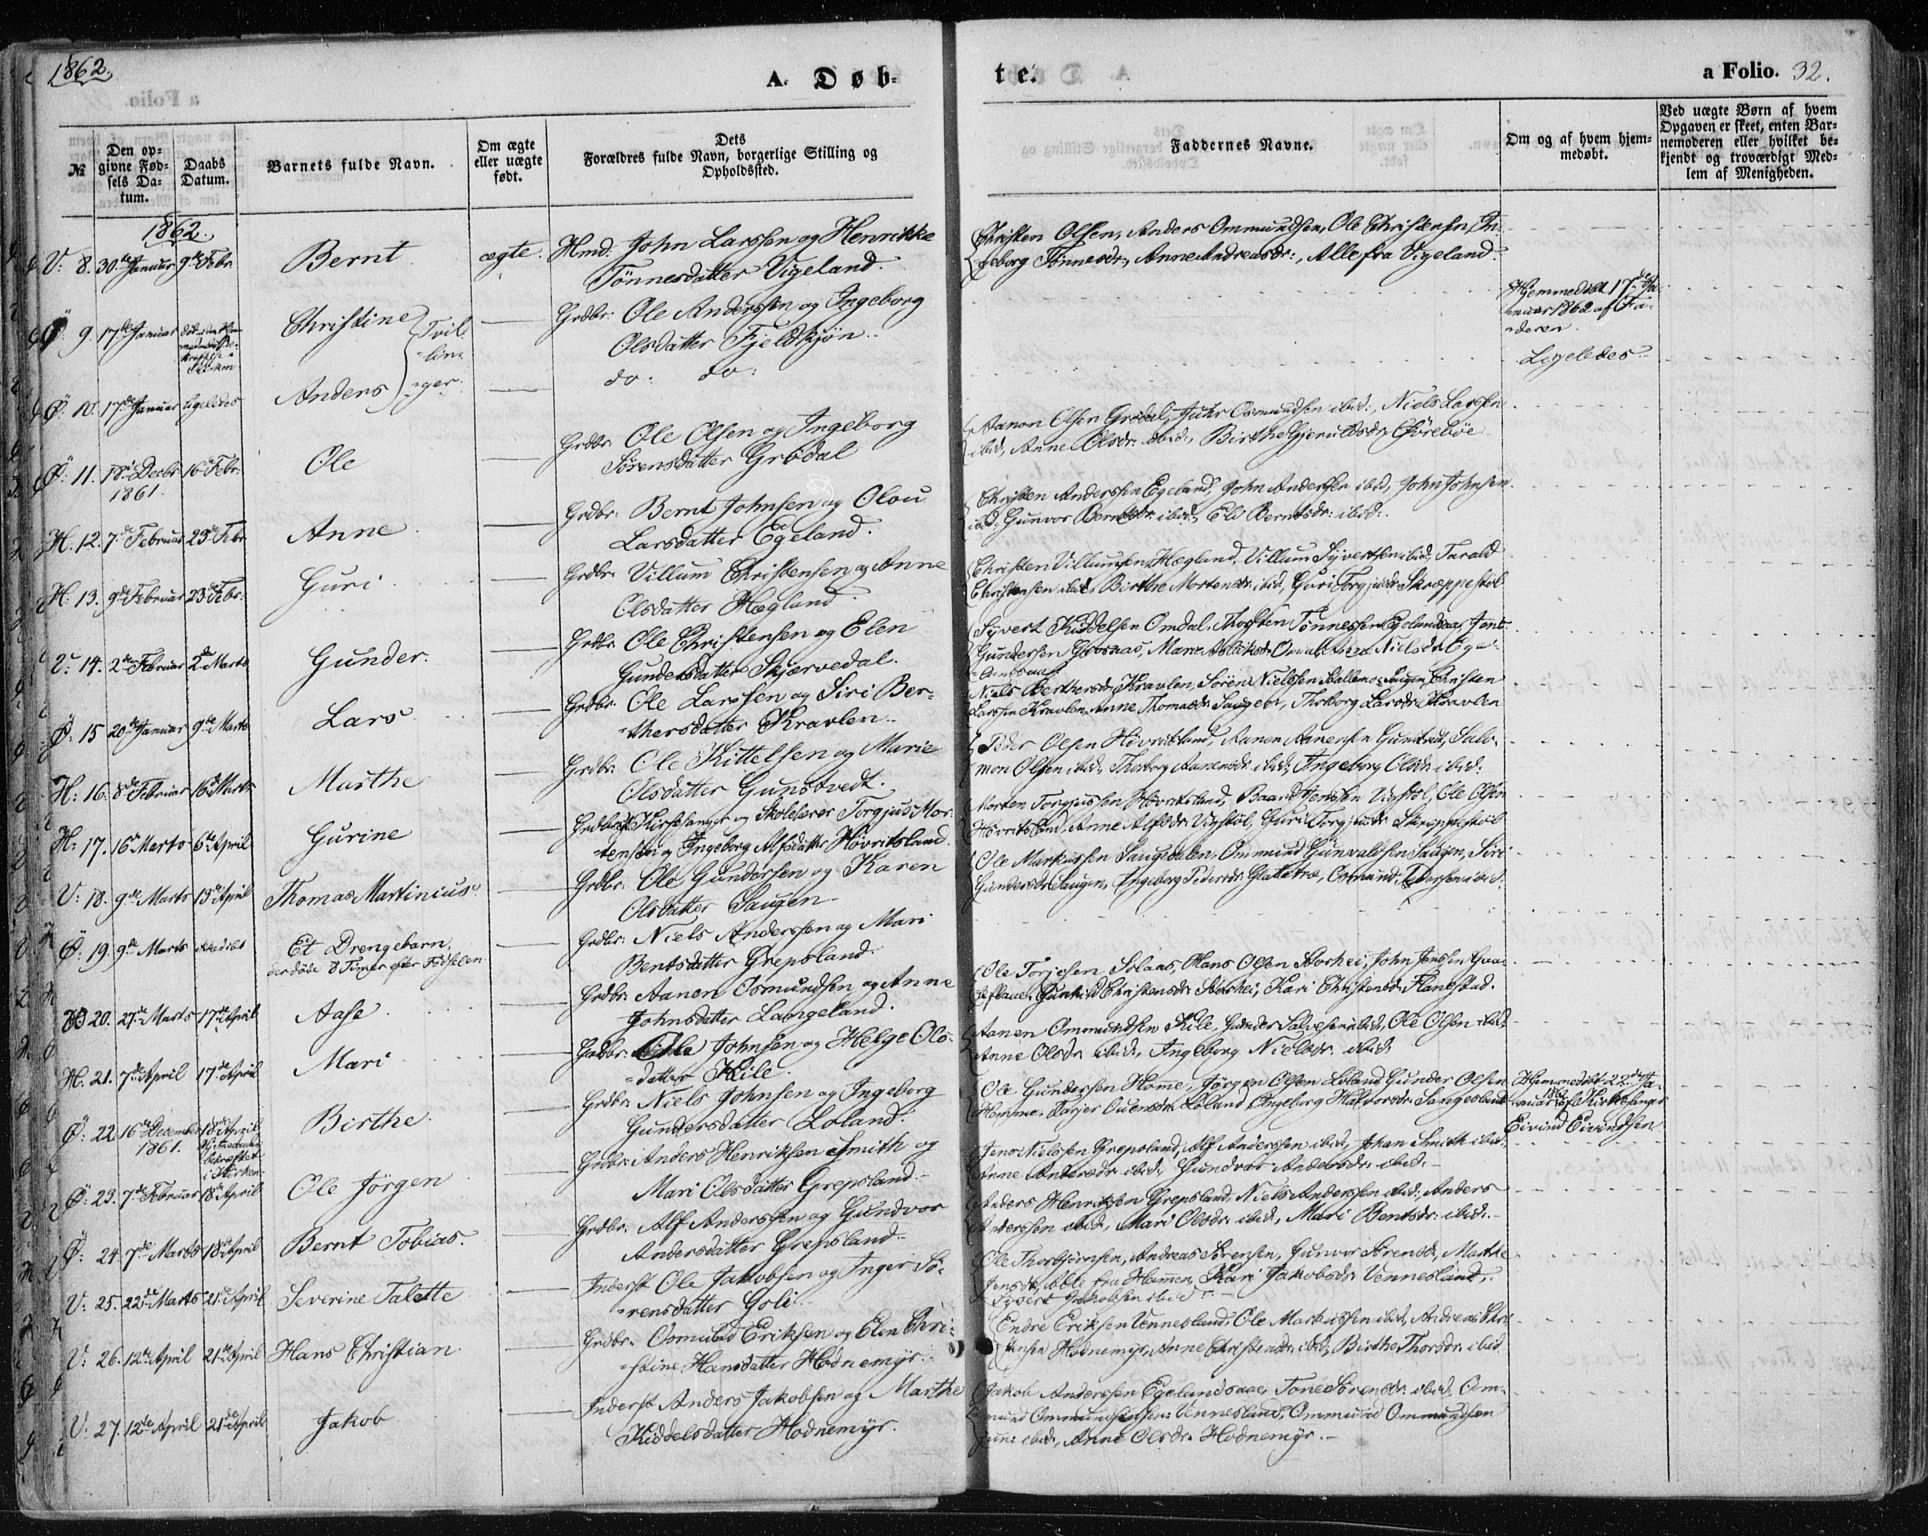 1862.
A. Døb-
te.
a Folio. 32.
№
Den opgivne Fødsels Datum.
Daabs Datum.
Barnets fulde Navn.
Om ægte eller uægte født.
Dets Forældres fulde Navn, borgerlige Stilling og Opholdssted.
Faddernes Navne.
Om og af hvem hjemmedøbt.
Ved uægte Børn af hvem Opgaven er skeet, enten Barnemoderen eller hvilket bekjendt og troværdigt Medlem af Menigheden.
1862.
V: 8. 30te Januar 9de Febr. Bernt ægte. Hmd. John Larssen og Henrikke
Tønnesdatter Vigeland.
Christen Olsen, Anders Ommundsen, Ole Christensen, In-
geborg Tønnesdr:, Anne Andreasdr:, Alle fra Vigeland.
Ø 9 17de Januar Christine Tvil- Grdbr: Ole Anderssen og Ingeborg
lin- Olsdatter Fjeldskjøn.
Hjemmedøbt 17de Ja-
nuar 1862 af Fa-
deren.
Ø: 10. 17de Januar ligeledes Anders ger. do: do:
Ligeledes.
Ø: 11. 18de Decbr 1861. 16de Febr. Ole Grdbr: Ole Olsen og Ingeborg
Sørensdatter Grödal
Aanon Olsen Grødal, Osmundsen ibid:, Niels Larssen
ibid, Anne Olsdr: ibid:, Birthe
H. 12. 7de Februar 23de Febr. Anne Grdbr: Bernt Johnsen og Olou
Larsdatter Egeland.
Christen Anderssen Egeland, John Anderssen ibid, John Johnsen
ibid, Gunvor Berntsdr: ibid, Eli Berntsdr: ibid:
H. 13. 9de Februar 23de Febr: Guri Grdbr: Villum Christensen og Anne
Olsdatter Hægland
Christen Villumsen Hægland, Villum Syvertsen ibid: Tarald
Christensen ibid, Birthe Mortensdr: ibid, Guri Torgjusdr: Skræppestøl
V: 14. 2de Februar 2de Marts Gunder. Grdbr: Ole Christensen og Elen
Gundersdatter Skjærvedal.
Syvert Kiddelsen Omdal, Thorsten Tønnessen Egelandsaa, Jens
Gundersen
Ø: 15 20de Januar 9de Marts Lars Grdbr: Ole Larssen og Siri Ber-
thersdatter Kravlen.
Niels Berthers Kravlen, Søren Nielssen Christen
Larssen Kravlen, Anne Thomasdr: Saugen, Thorborg Larsdr: Kravlen
H: 16. 8de Februar 16de Marts Marthe Grdbr: Ole Kittelsen og Marie
Olsdatter Gunstvedt.
Peder Olsen Hövritsland, Aanen Aanensen Gunstvedt, Salo-
mon Olsen ibid, Thorborg Aanensdr: ibid, Ingeborg Olsdr: ibid:
H: 17. 16de Marts 6te April Gurine Grdbr: Kirkesanger og Skolelærer Torgjus Mor-
tensen og Ingeborg Alfsdatter Hövritsland
Morten Torgjussen Hövritsland, Baard Jenssen Vigstøl, Ole Olsen
Hövritsland, Anne Alfsdr: Vigstøl, Guri Torgjusdr: Skræppestøl
V: 18. 9de Marts 13de April Thomas Martinius Grdbr: Ole Gundersen og Karen
Olsdatter Saugen
Ole Markussen Saugedalen, Ommund Gunvaldsen Saugen, Siri
Gundersdr: Saugen, Ingeborg Pedersdr: Osmund ibid:
Ø: 19. 9de Marts Et Drengebarn, Grdbr: Niels Anderssen og Mari
der døde 8 Timer efter Fødselen
Bentsdatter Grepsland.
20. 27de Marts 17de April Aase Grdbr: Aanen Osmundsen og Anne
Johnsdatter Langeland.
Ole Torjesen Solaas, Hans Olsen John Jenssen
Christensdr: Kari Christensdr: Flanestad.
H. 21. 7de April 17de April Mari Grdbr: Johnsen og Helge Ols-
datter Kile.
Aanen Ommundsen Kile, Gunder Salvesen ibid, Ole Olsen ibid,
Anne Olsdr: ibid, Ingeborg Nielsdr: ibid
Ø: 22. 16de December 1861. 18de April Birthe Grdbr: Niels Johnsen og Ingeborg
Gundersdatter Loland.
Ole Gundersen Home, Jørgen Olsen Loland, Gunder Olsen
Homme, Loland, Ingeborg Halvorsdr:
Hjemmedøbt 22de Ja-
nuar 1862 af Kirkesanger
Eivind Eivindsen
Ø: 23. 7de Februar 18de April Ole Jörgen Grdbr: Anders Henriksen Smith og
Mari Olsdatter Grepsland.
Jens Nielsen Grepsland, Alf Anderssen ibid, Johan Smith ibid,
Anne Andersdr: ibid, Gundvor Andersdr: ibid.
Ø: 24. 7de Marts 18de April Bernt Tobias. Grdbr: Alf Anderssen og Gundvor
Andersdatter Grepsland.
Anders Henriksen Grepsland, Niels Anderssen ibid, Anders
Anderssen ibid, Mari Olsdr: ibid, Mari Bentsdr: ibid.
V: 25. 22de Marts 21de April Severine Talette Inderst Ole Jakobsen og Inger Sö-
rensdatter Goli.
Ole Thorbjörnsen, Andreas Sørensen, Gunvor Sørensdr, Marthe
Jensdr, Alle fra Hamren, Kari Jakobsdr: Vennesland,
Syvert Jakobsen ibid.
V: 26. 12te April 21de April Hans Christian Grdbr: Osmund Eriksen og Elen Chri-
stine Hansdatter Hodnemyr.
Endre Eriksen Vennesland, Ole Markussen ibid, Andreas Chri-
stensen Hodnemyr, Anne Christensdr: ibid, Birthe Thorsdr: ibid
V: 27. 12te April 21de April Jakob Inderst Anders Jakobsen og Marthe
Kiddelsdatter Hodnemyr.
Jakob Anderssen Egelandsaae, Tone Sørensdr: ibid, Om-
mund Ommundsen Vennesland, Ommund Ommundsen
ibid, Anne Olsdr: Hodnemyr.